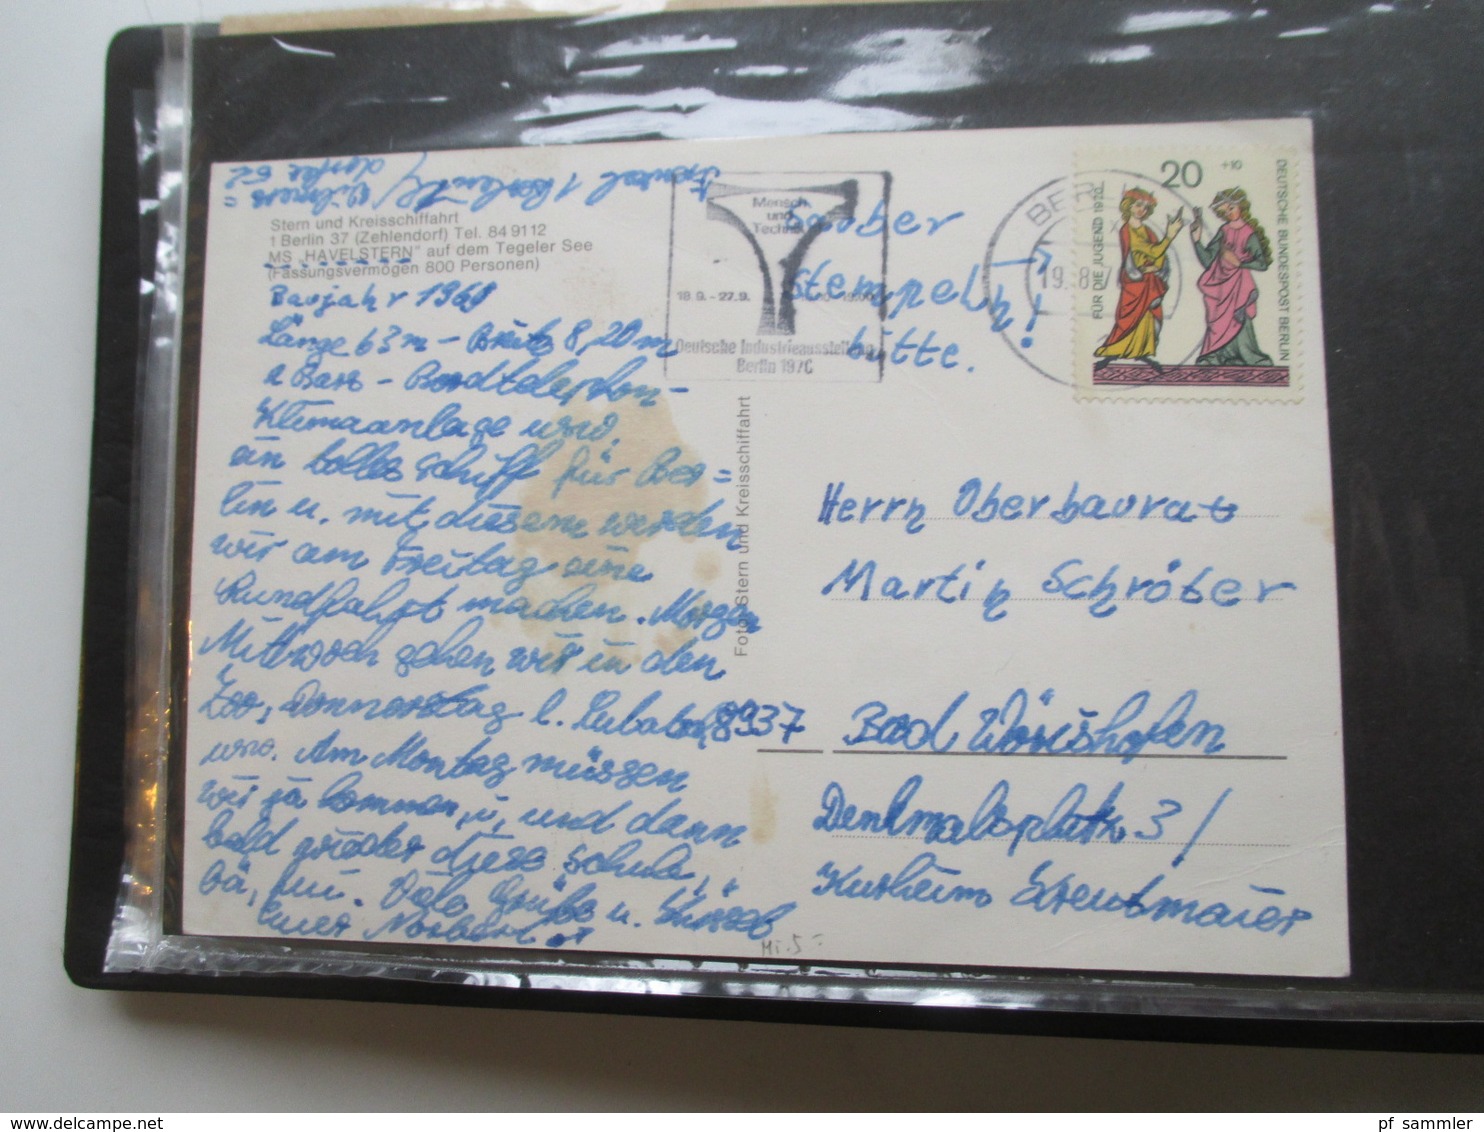 Stern und Kreisschiffahrt
1 Berlin 37 (Zehlendorf) Tel. 84 91 12
MS „HAVELSTERN" auf dem Tegeler See
(Fassungsvermögen 800 Personen)
Baujahr 1968
Länge 63 m - Breite 8,20 m
Bar - Bordtelephon -
Klimaanlage und
ein tolles Schiff für Ber=
lin u. mit diesem werden
wir am Freitag eine
Rundfahrt machen. Morgen
Mittwoch gehen wir in den
Zoo, Donnerstag
usw. Am Montag müssen
wir ja kommen, u, und dann
bald wieder diese Schule,
Viele Grüße u.
Euer Norbert
Foto: Stern und Kreisschiffahrt
Mensch
und
Technik
18.9. - 27.9.
Deutsche Industrieausstellung
Berlin 1970
Sauber
stempeln!
bitte.
BERL
19.8.7
20 +10
FÜR DIE JUGEND 1970
DEUTSCHE BUNDESPOST BERLIN
Herrn Oberbaurat
Martin Schröter
8937 Bad Wörishofen
Denkmalsplatz 3/
Kurheim Kreutmaier
Mi. 5 -
pf_sammler